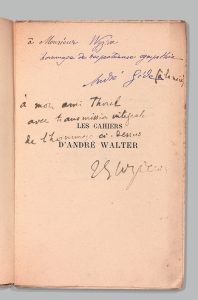 à Monsieur Wyzewa
hommage de respectueuse sympathie
André Gide
à mon ami Thorel
avec transmission intégrale
LES CAHIERS
de l'hommage ci-dessus
D'ANDRÉ WALTER